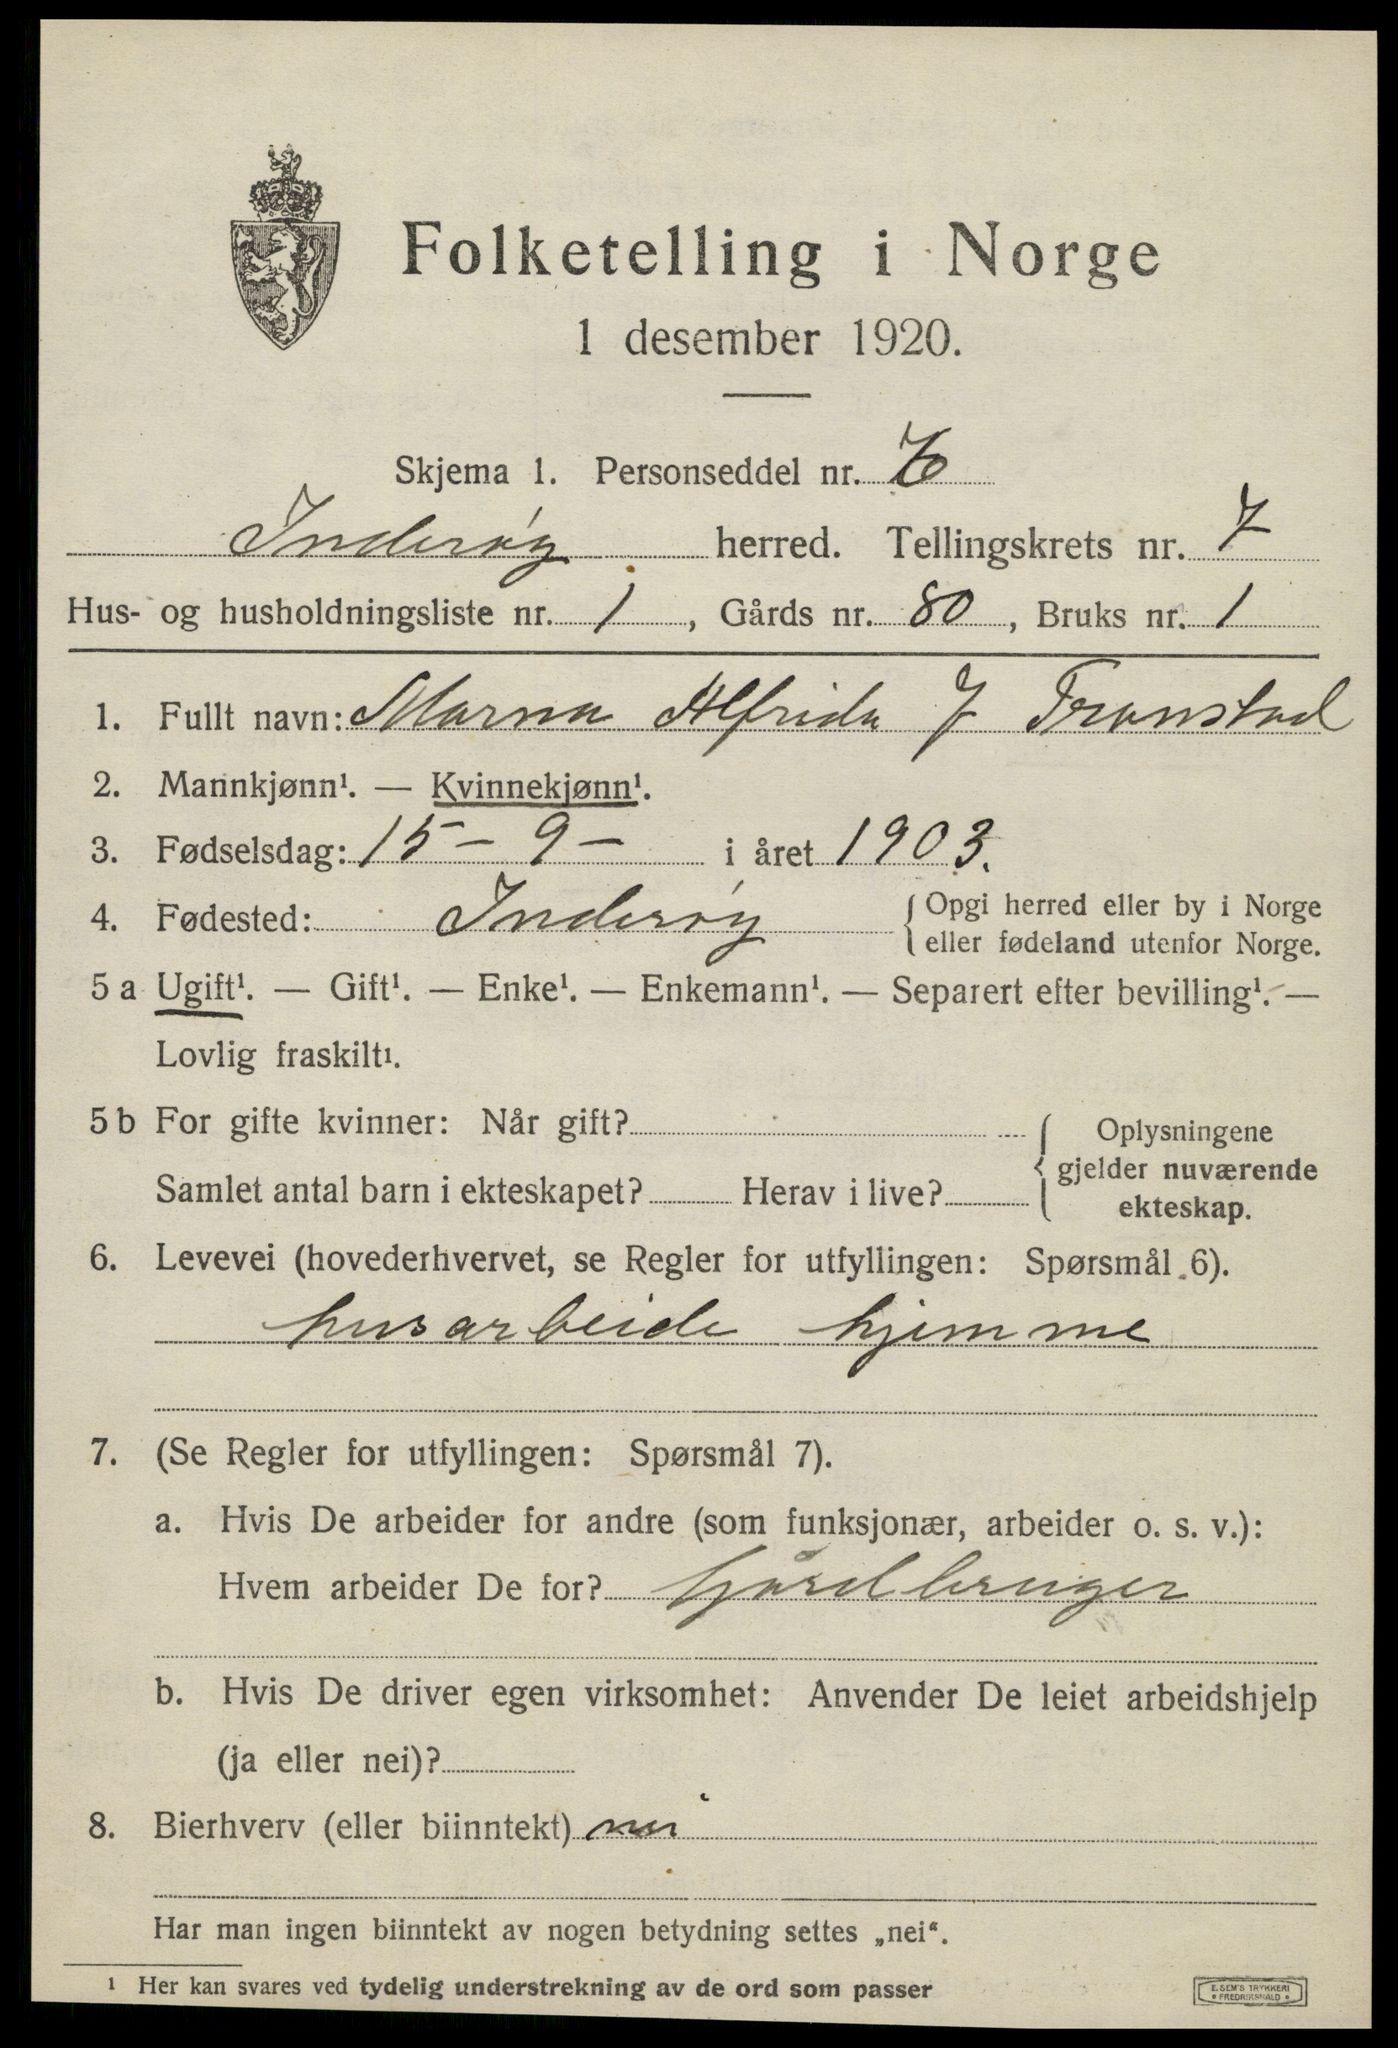 Folketelling i Norge
1 desember 1920.
Skjema 1. Personseddel nr.
Inderøy herred. Tellingskrets nr. 7
Hus- og husholdningsliste nr. 1, Gårds nr. 80, Bruks nr. 1
1. Fullt navn: Marna Alfrida J Tronstad
2. Mannkjønn¹. — Kvinnekjønn¹.
3. Fødselsdag: 15 – 9 – i året 1903.
4. Fødested: Inderøy { Opgi herred eller by i Norge
eller fødeland utenfor Norge.
5 a Ugift¹. — Gift¹. — Enke¹. — Enkemann¹. — Separert efter bevilling¹. —
Lovlig fraskilt¹.
5 b For gifte kvinner: Når gift?
Samlet antal barn i ekteskapet? Herav i live?
Oplysningene
gjelder nuværende
ekteskap.
6. Levevei (hovederhvervet, se Regler for utfyllingen: Spørsmål 6).
husarbeide hjemme
7. (Se Regler for utfyllingen: Spørsmål 7).
a. Hvis De arbeider for andre (som funksjonær, arbeider o. s. v.):
Hvem arbeider De for? Gårdbruger
b. Hvis De driver egen virksomhet: Anvender De leiet arbeidshjelp
(ja eller nei)?
8. Bierhverv (eller biinntekt) nei
Har man ingen biinntekt av nogen betydning settes „nei“.
¹ Her kan svares ved tydelig understrekning av de ord som passer
E. SEM'S TRYKKERI
• FREDRIKSHALD •